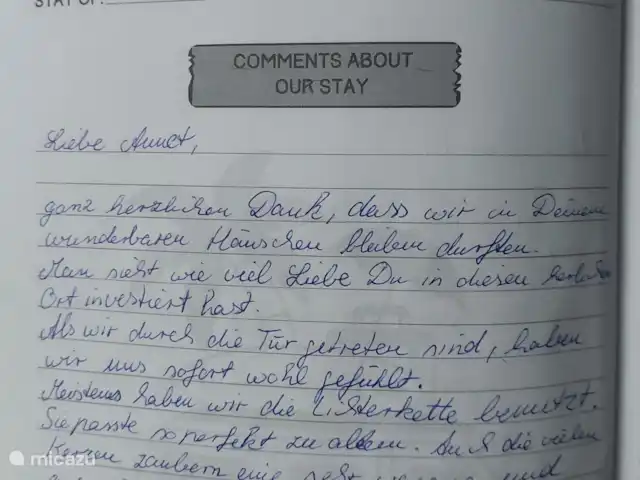 STAY OF:
COMMENTS ABOUT
OUR STAY
Liebe Annet,
ganz herzlichen Dank, dass wir in Deinem
wunderbaren Häuschen bleiben durften.
Man sieht wie viel Liebe Du in diesen
Ort investiert hast.
Als wir durch die Tür getreten sind, haben
wir uns sofort wohl gefühlt.
Meistens haben wir die Lichterkette benutzt.
Sie passte so perfekt zu allem. Auch die vielen
Kerzen zaubern eine und
micazu